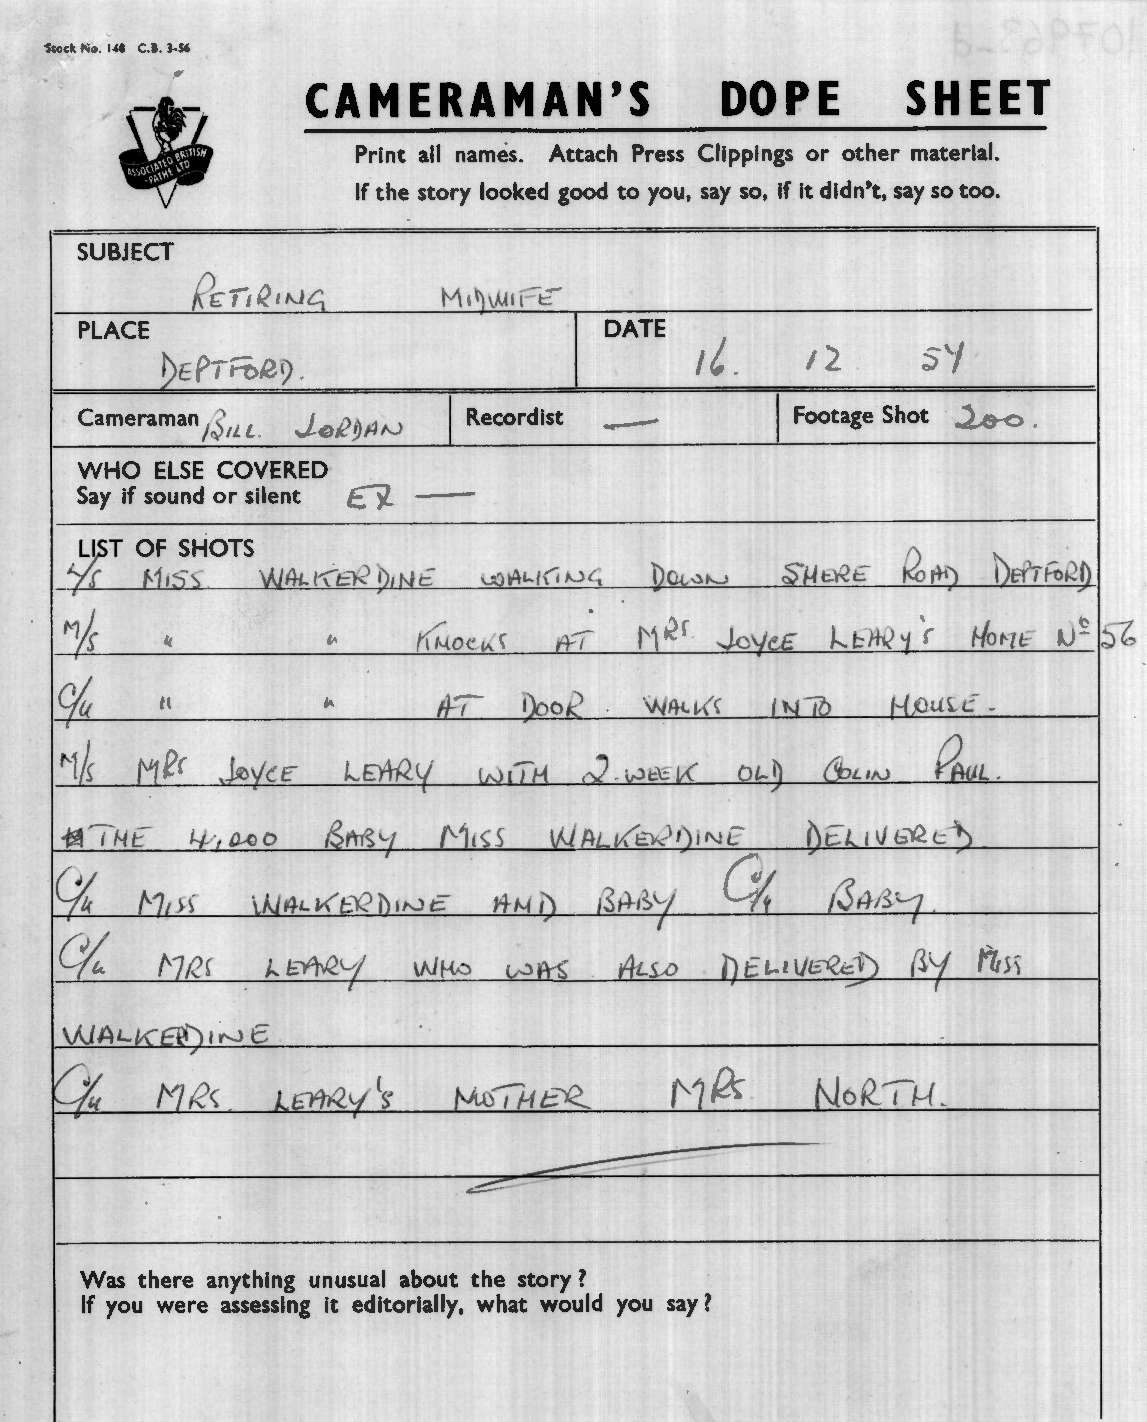 Stock No. 148 C.B. 3-56
CAMERAMAN'S DOPE SHEET
ASSOCIATED BRITISH
-PATHE LTD
Print all names. Attach Press Clippings or other material.
If the story looked good to you, say so, if it didn't, say so too.
SUBJECT
RETIRING MIDWIFE
PLACE
DEPTFORD.
DATE
16. 12 54
Cameraman BILL. JORDAN
Recordist —
Footage Shot 200.
WHO ELSE COVERED
Say if sound or silent EX —
LIST OF SHOTS
L/S MISS. WALKERDINE WALKING DOWN SHERE ROAD DEPTFORD
M/S " " KNOCKS AT MRS. JOYCE LEARY'S HOME No 56
C/U " " AT DOOR. WALKS INTO HOUSE.
M/S MRS JOYCE LEARY WITH 2.WEEK OLD COLIN PAUL.
THE 4,000 BABY MISS WALKERDINE DELIVERED
C/U MISS WALKERDINE AND BABY C/U BABY.
C/U MRS LEARY WHO WAS ALSO DELIVERED BY MISS
WALKERDINE
C/U MRS. LEARY'S MOTHER MRS. NORTH.
Was there anything unusual about the story?
If you were assessing it editorially, what would you say?